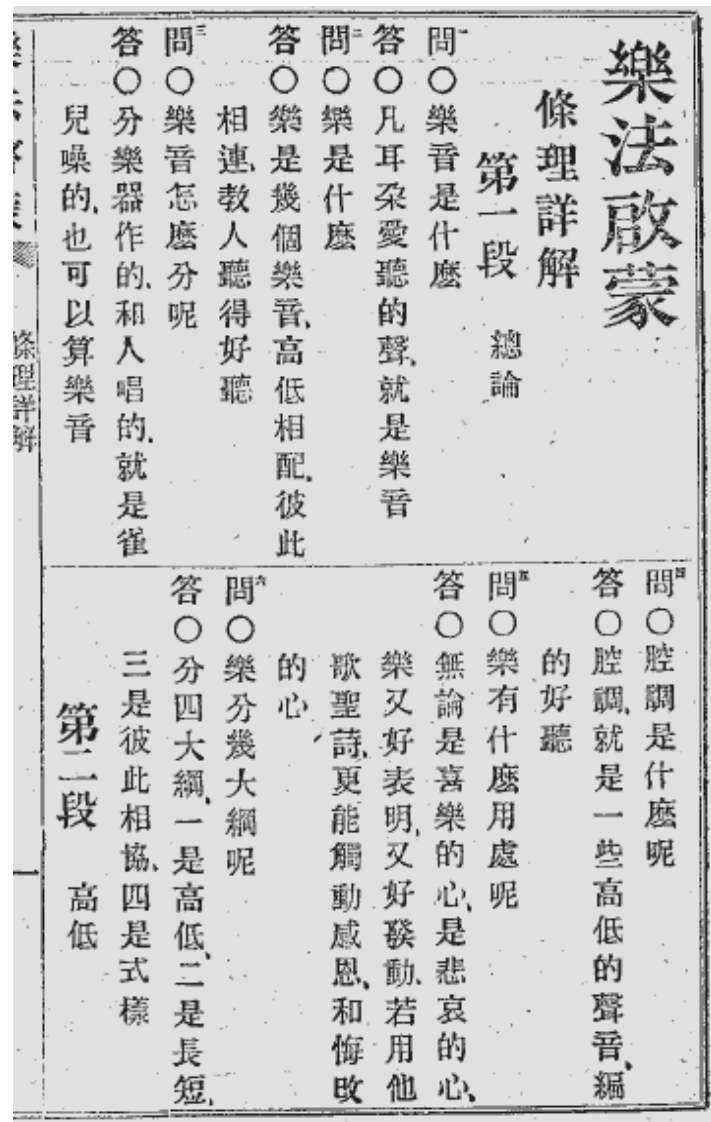 樂法啟蒙
條理詳解
第一段 總論
問一〇樂音是什麽
答〇凡耳朶愛聽的聲、就是樂音
問二〇樂是什麽
答〇樂是幾個樂音、高低相配、彼此
相連、敎人聽得好聽
問三〇樂音怎麽分呢
答〇分樂器作的、和人唱的、就是雀
兒噪的、也可以算樂音
問四〇腔調是什麽呢
答〇腔調、就是一些高低的聲音、編
的好聽
問五〇樂有什麽用處呢
答〇無論是喜樂的心、是悲哀的心、
樂又好表明、又好發動、若用他
歌聖詩、更能觸動感恩、和悔改
的心、
問六〇樂分幾大綱呢
答〇分四大綱、一是高低、二是長短、
三是彼此相協、四是式樣
第二段 高低
條理詳解
一